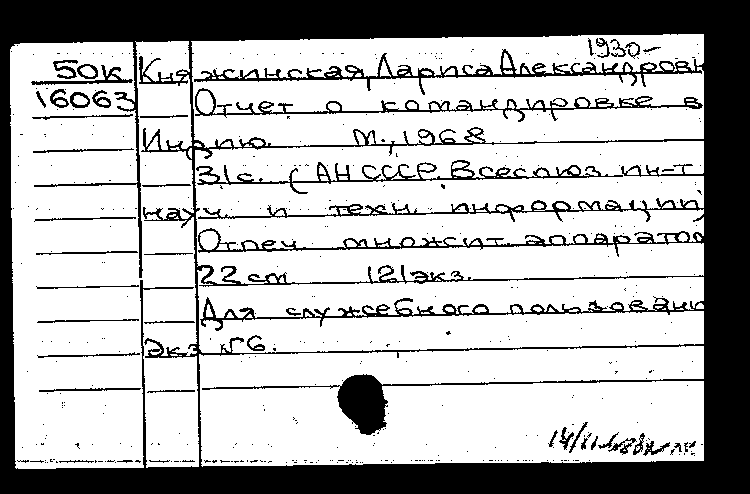 1930-
50к Княжинская, Лариса Александровн
16063 Отчет о командировке в
Индию. М., 1968.
31с. (АН СССР. Всесоюз. ин-т
науч. и техн. информации)
Отпеч. множит. аппаратом
22 cm 121 экз.
Для служебного пользовани
Экз №6.